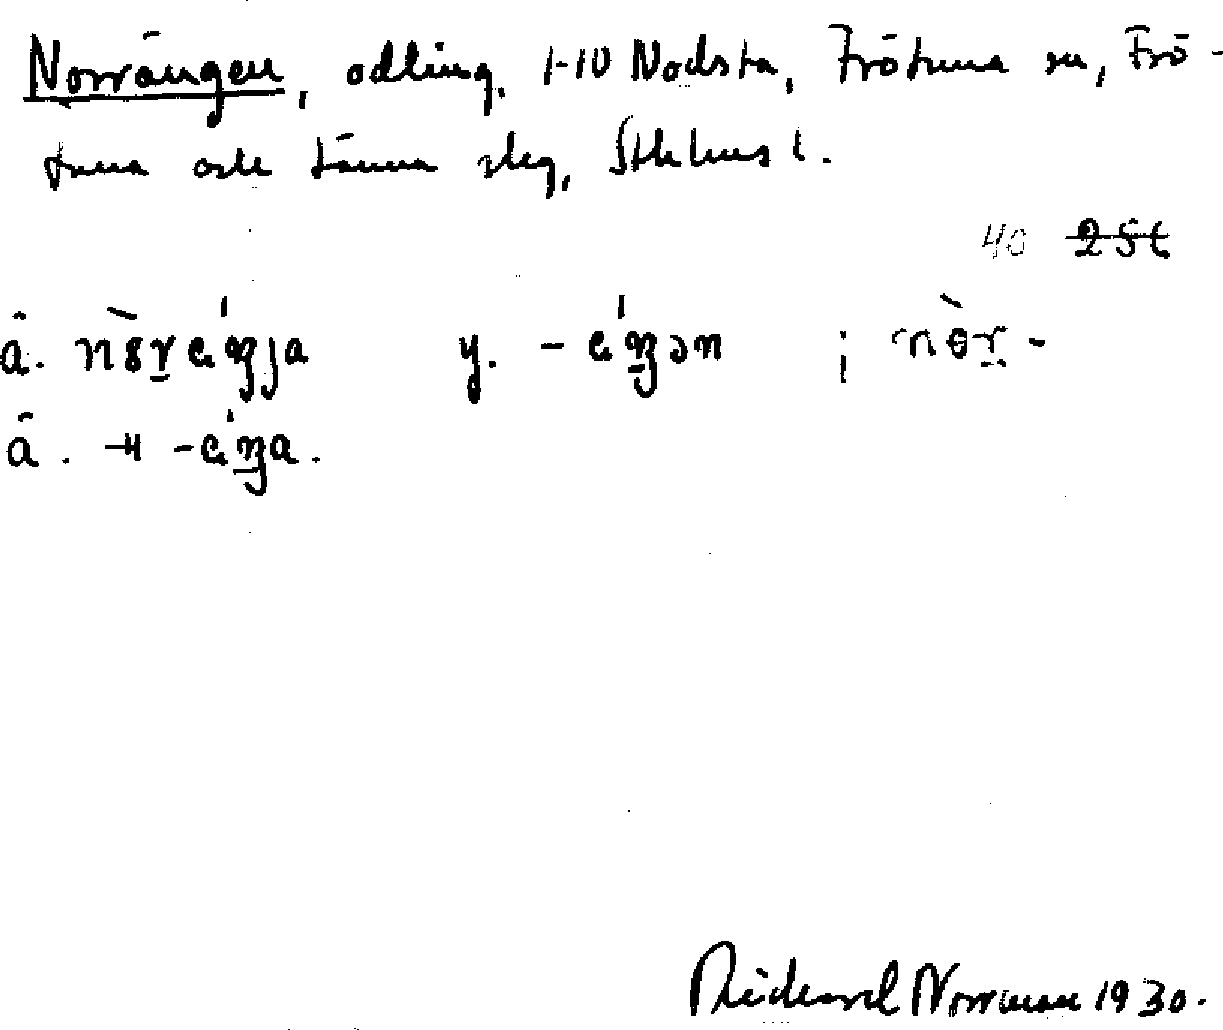 Norrängen, odling, 1-10 Nodsta, Frötuna sn, Frö-
tuna och Länna slg, Sthlms l.
40 256
å. nòrɛ́ŋja y. -ɛ́ŋən ; nòr-
å. ⫞ -ɛ́ŋa.
Rickard Norrman 1930.